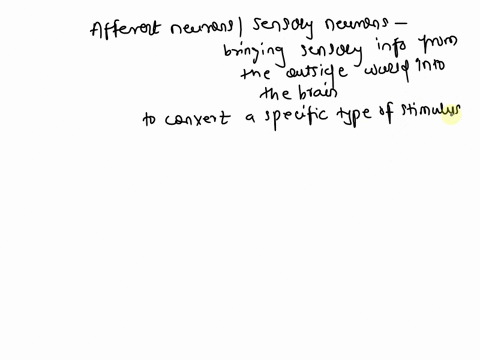 Afferent neurons | sensory neurons –
bringing sensory info from
the outside world into
the brain
to convert a specific type of stimulus